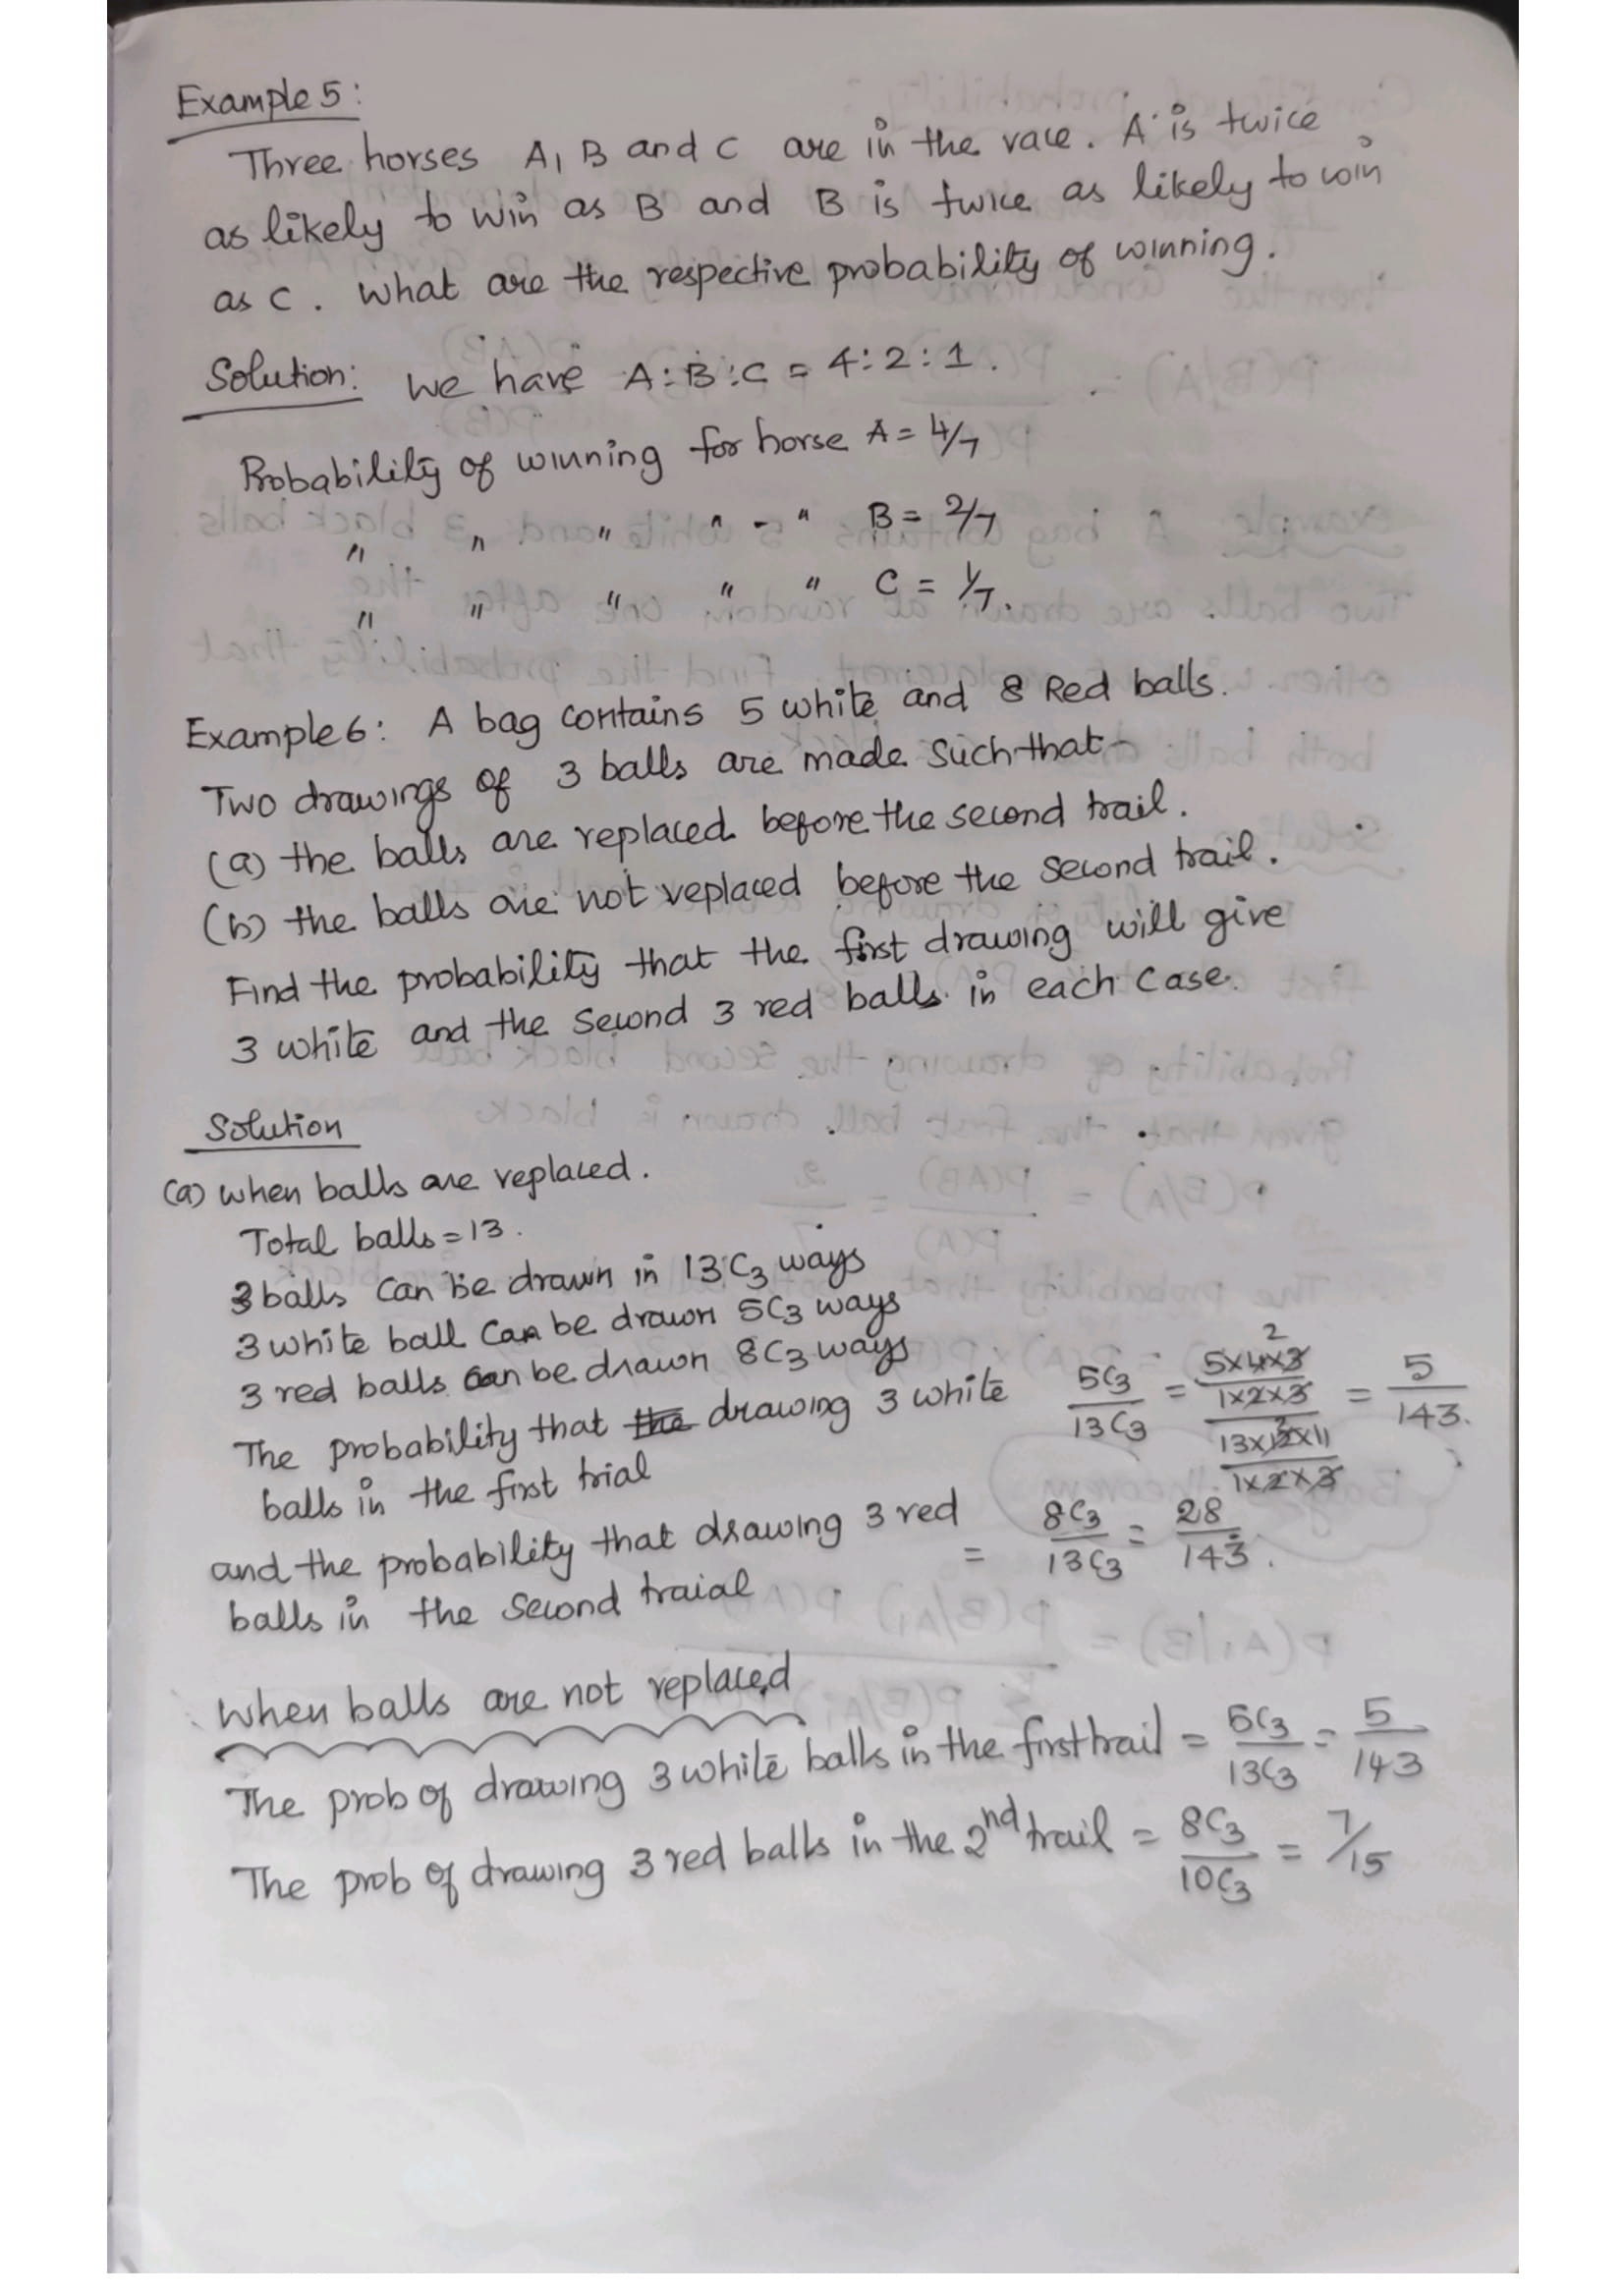 Example 5:
Three horses A, B and C are in the race. A is twice
as likely to win as B and B is twice as likely to win
as C. What are the respective probability of winning.
Solution: we have A:B:C = 4:2:1.
Probability of winning for horse A = 4/7
" " " " - " B = 2/7
" " " " " C = 1/7.
Example 6: A bag contains 5 white and 8 Red balls.
Two drawings of 3 balls are made such that
(a) the balls are replaced before the second trail.
(b) the balls are not replaced before the second trail.
Find the probability that the first drawing will give
3 white and the second 3 red balls in each case.
Solution
(a) when balls are replaced.
Total balls = 13.
3 balls can be drawn in 13C3 ways
3 white ball can be drawn 5C3 ways
3 red balls can be drawn 8C3 ways
The probability that the drawing 3 white balls in the first trial 5C3/13C3 = (5x4x3/1x2x3)/(13x12x11/1x2x3) = 5/143.
and the probability that drawing 3 red balls in the second traial = 8C3/13C3 = 28/143.
When balls are not replaced
The prob of drawing 3 white balls in the first trail = 5C3/13C3 = 5/143
The prob of drawing 3 red balls in the 2nd trail = 8C3/10C3 = 7/15